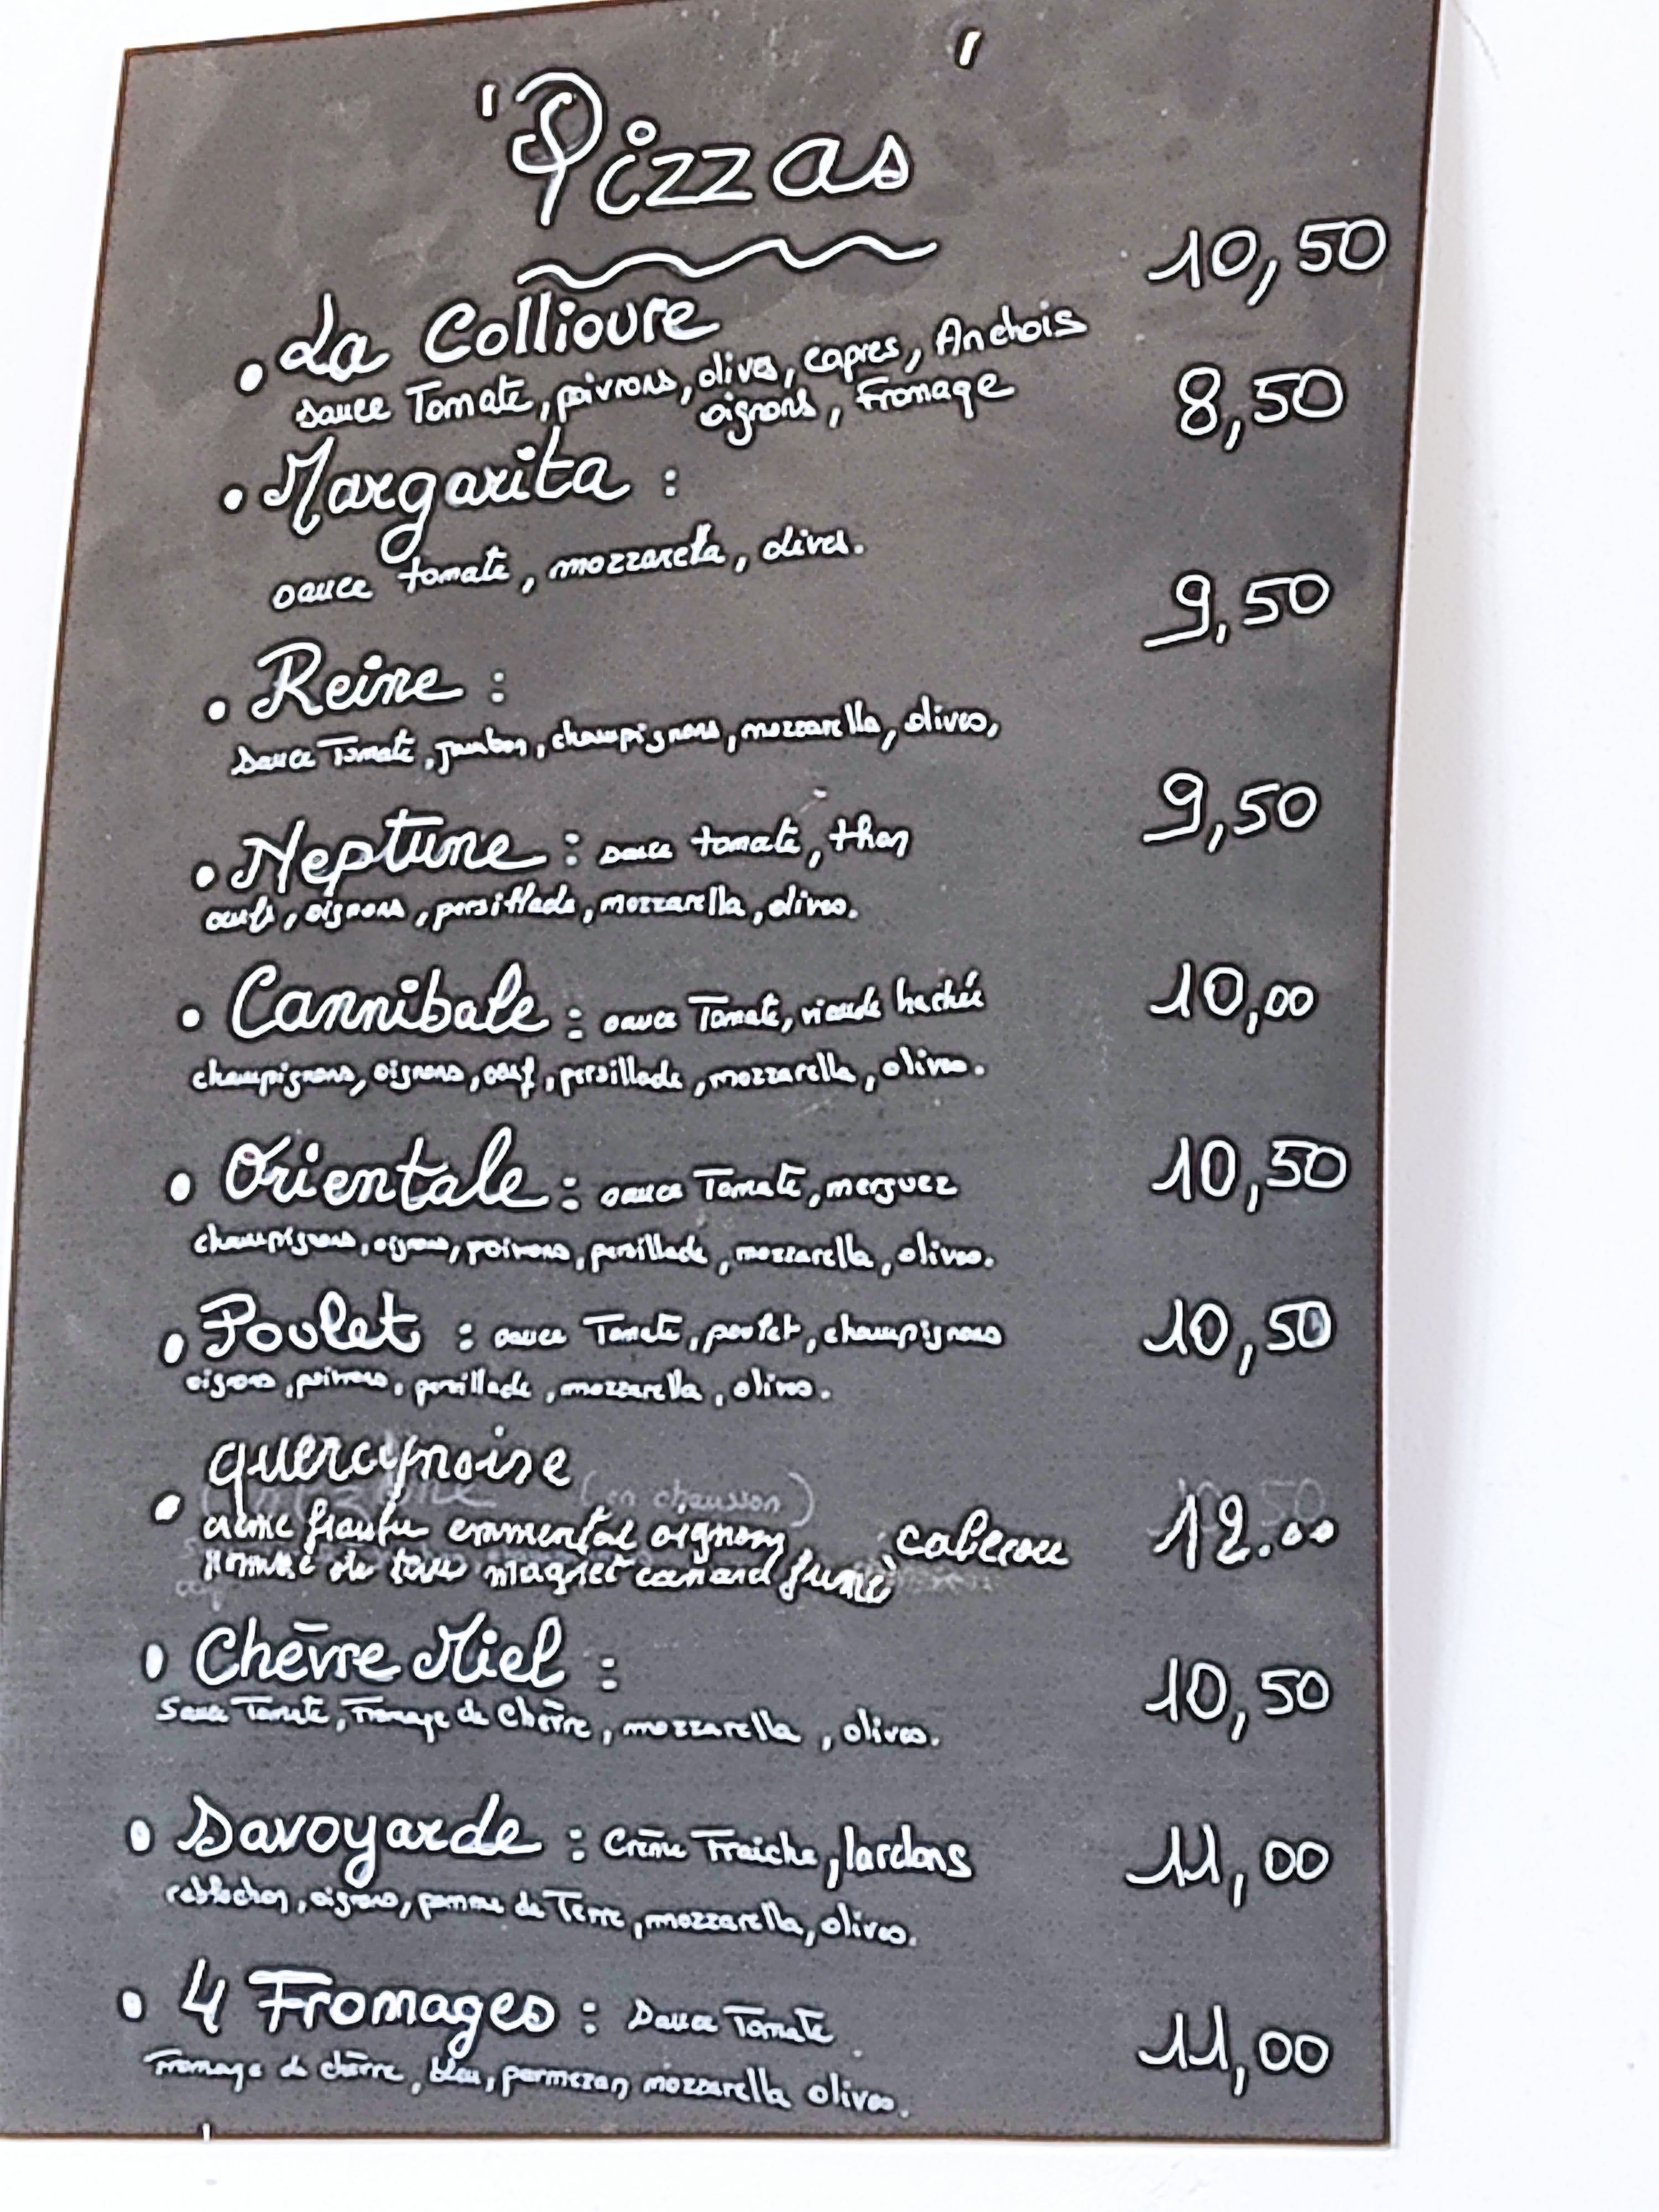 'Pizzas'
• La Collioure 10,50
sauce Tomate, poivrons, olives, capres, Anchois
oignons, Fromage
• Margarita : 8,50
sauce tomate, mozzarella, olives.
• Reine : 9,50
Sauce Tomate, jambon, champignons, mozzarella, olives,
• Neptune : sauce tomate, thon 9,50
œufs, oignons, persillade, mozzarella, olives.
• Cannibale : sauce Tomate, viande hachée 10,00
champignons, oignons, œuf, persillade, mozzarella, olives.
• Orientale : sauce Tomate, merguez 10,50
champignons, oignons, poivrons, persillade, mozzarella, olives.
• Poulet : sauce Tomate, poulet, champignons 10,50
oignons, poivrons, persillade, mozzarella, olives.
• quercynoise 12.00
(en chausson)
crème fraiche emmental oignons cabecou
pomme de terre magret canard fumé
• Chèvre Miel : 10,50
Sauce Tomate, Fromage de Chèvre, mozzarella, olives.
• Savoyarde : Crème Fraiche, lardons 11,00
reblochon, oignons, pomme de Terre, mozzarella, olives.
• 4 Fromages : Sauce Tomate 11,00
Fromage de chèvre, bleu, parmezan mozzarella olives.